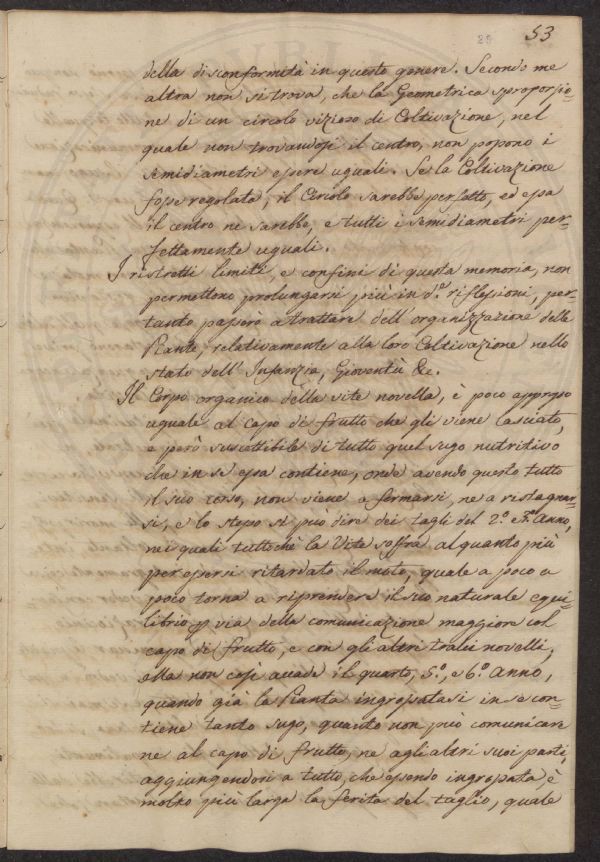 53
29
della disconformità in questo genere. Secondo me
altra non si trova, che la Geometrica sproporsio=
ne di un circolo vizioso di Coltivazione, nel
quale non trovandosi il centro, non possono i
semidiametri essere uguali. Se la Coltivazione
fosse regolata, il Circolo sarebbe perfetto, ed essa
il centro ne sarebbe, e tutti i semidiametri per=
fettamente uguali.
I ristretti limiti, e confini di questa memoria, non
permettono prolungarsi più in d.e riflessioni, per=
tanto passerò a trattare dell'organizzazione delle
Piante, relativamente alla loro Coltivazione nello
stato dell'Infanzia, Gioventù &c.
Il Corpo organico della vite novella, è poco appresso
uguale al capo di frutto che gli viene lasciato,
e però suscettibile di tutto quel sugo nutritivo
che in se essa contiene, onde avendo questo tutto
il suo corso, non viene a fermarsi, ne a ristagnar=
si, e lo stesso si può dire dei tagli del 2.º e 3.º anno,
nei quali tuttochè la Vite soffra alquanto più
per essersi ritardato il moto, quale a poco a
poco torna a riprendere il suo naturale equi=
librio p via della comunicazione maggiore col
capo di frutto, e con gli altri tralci novelli,
Ma non così accade il quarto, 5.º, e 6.º anno,
quando già la Pianta ingrossatasi in se con=
tiene tanto sugo, quanto non può comunicare
ne al capo di frutto, ne agli altri suoi parti,
aggiungendovi a tutto, che essendo ingrossata, è
molto più larga la ferita del taglio, quale